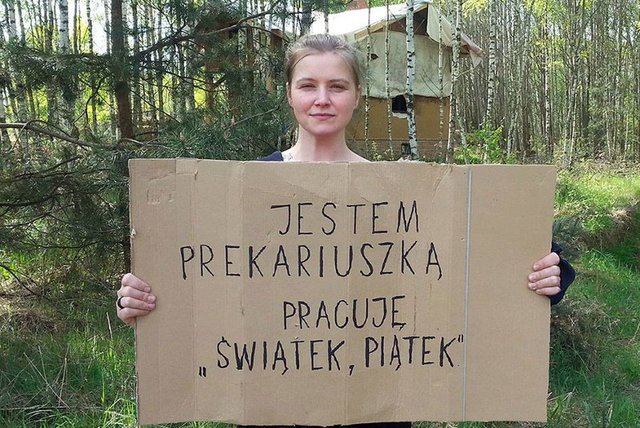 JESTEM
PREKARIUSZKĄ
PRACUJĘ
„ŚWIĄTEK, PIĄTEK"